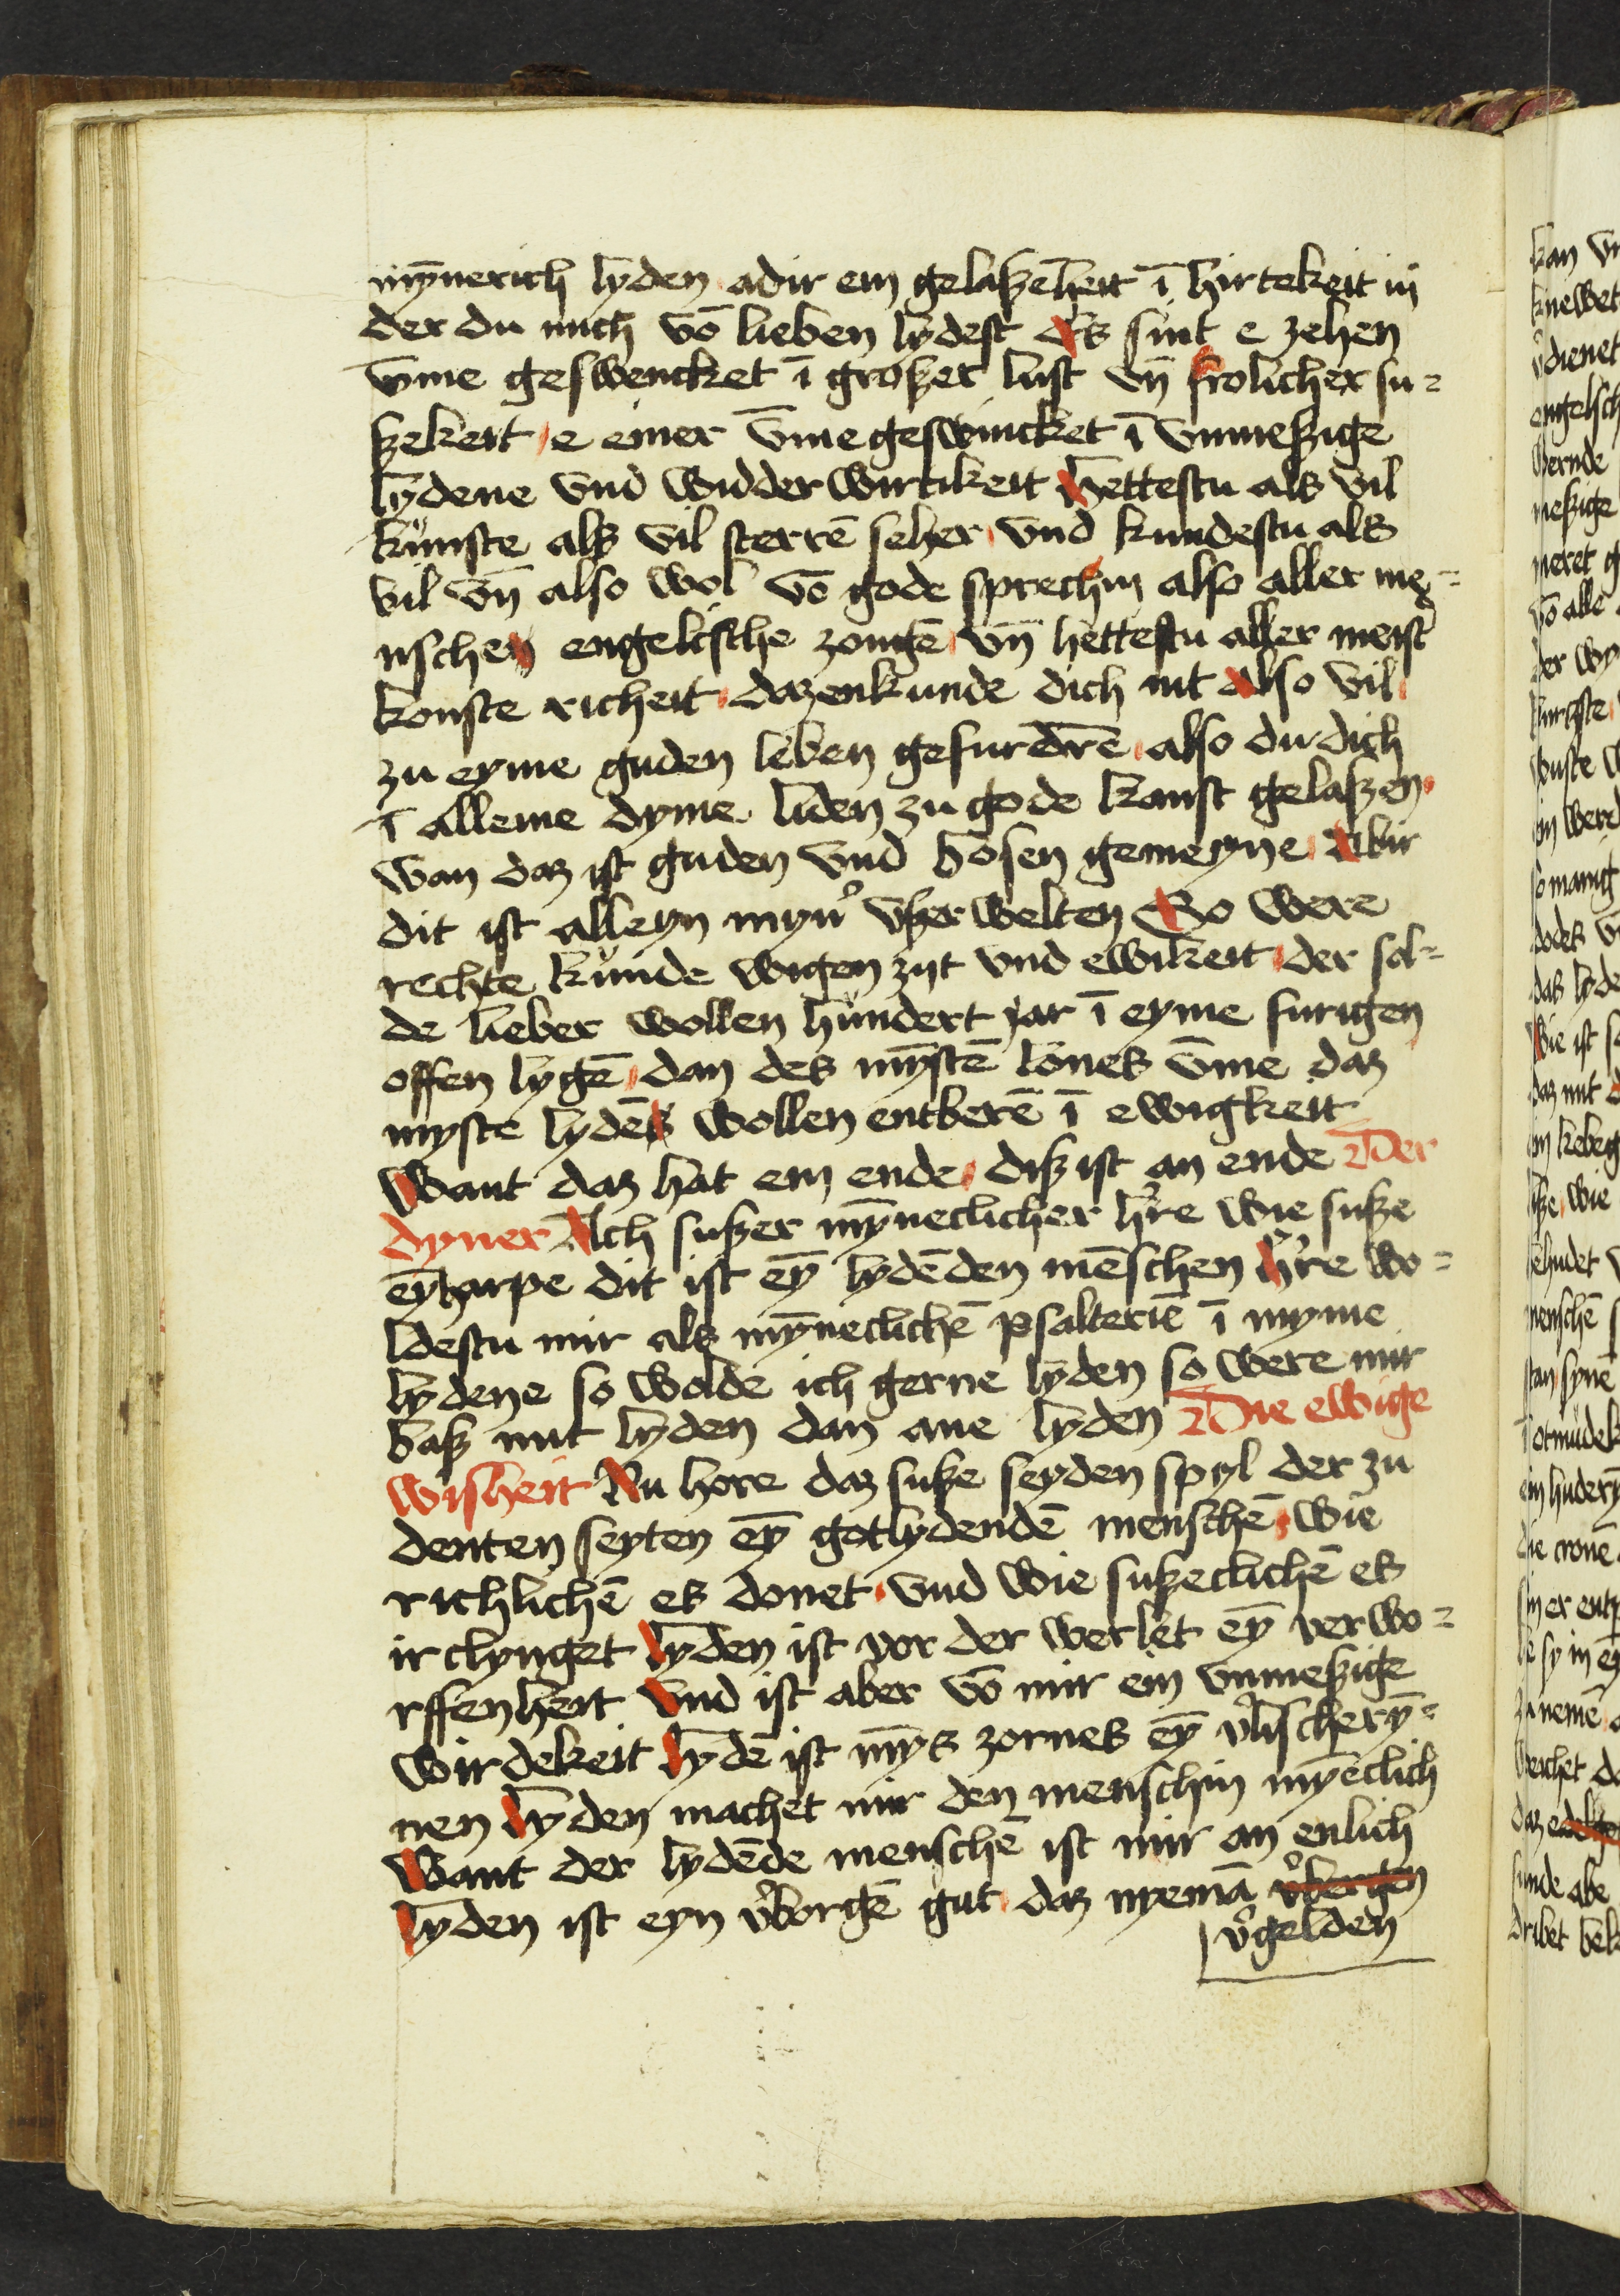 mỹnerich lyden adir ein gelaßeheit ī hirtekeit in
der du mich vō lieben lydest Es sint e zehen
v̄me geswencket ī großer lust vn̄ frolicher su=
ßekeit e einer v̄me geswincket ī vnmeßige
lydene vnd widderwirtikeit Hettestu als vil
kůnste als vil sterrē seher vnd kundestu als
vil vn̄ also wol vō gode sprechin also aller me=
nschen engelische zongē vn̄ hettestu aller meist
konste richeit dazenkunde dich nit also vil
zu eyme guden leben gefurdrē also du dich
ī alleme dyme liden zu gode kanst gelaßen
wan daz ist guden vnd bosen gemeyne Abir
dit ist alleyn myn’ vßerwelten So were
rechte kůnde wigen zijt vnd ewikeit der sol=
de lieber wollen hůndert jar ī eyme furigen
offen lygē dan des mȳstē lones v̄me daz
myste lydēs wollen entberē ī ewigkeit
Want daz hat ein ende diß ist an ende Der
dyner Ach sußer mȳneclicher h’re wie suße
eȳharpe dit ist eȳ lydēden mēschen h’re wo=
ldestu mir als mȳneclichē psalteriē ī myme
lydene so wolde ich gerne lyden so were mir
baß mit lyden dan ane lyden Die ewige
wisheit Nu hore daz suße seyden spyl der zu
denten seyten eȳ gotlydendē menschē wie
richlichē es donet vnd wie sußeclichē es
irclynget lyden ist vor der werlet eȳ verwo=
rffenheit vnd ist aber vō mir ein vnmeßige
wirdekeit lydē ist mȳs zornes eȳ v’lischerȳ=
nen lyden machet mir den menschin mȳeclich
Want der lydēde menschē ist mir an enlich
lyden ist eyn v’borgē gut daz nyemā v’bergen
v’gelden